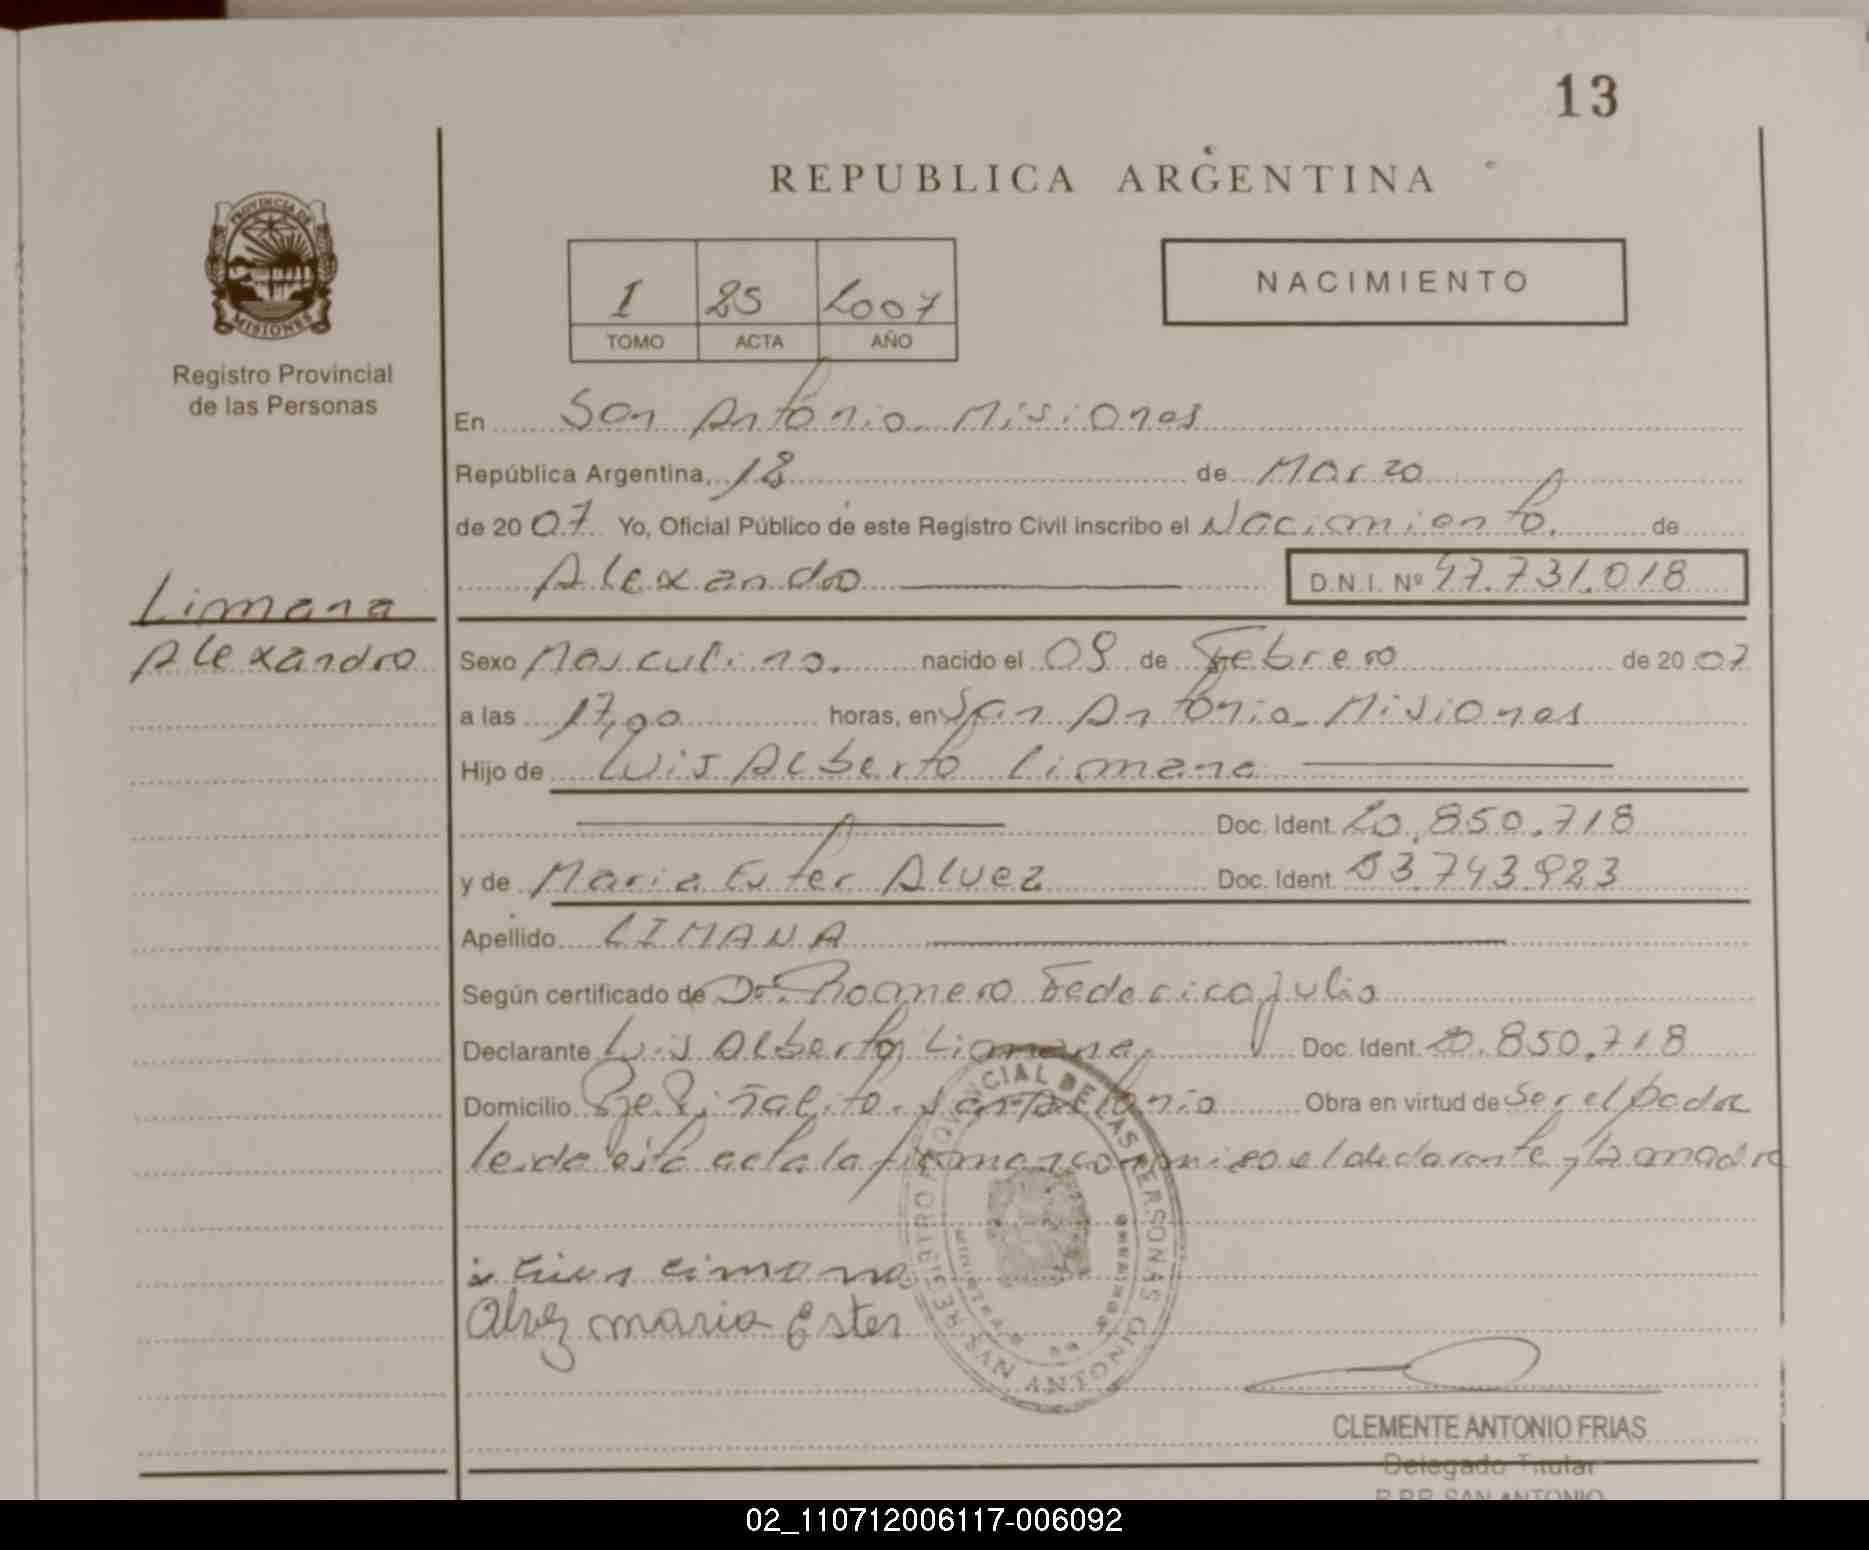 13
REPUBLICA ARGENTINA
PROVINCIA DE
MISIONES
Registro Provincial
de las Personas
I 25 2007
TOMO ACTA AÑO
NACIMIENTO
En San Antonio Misiones
República Argentina, 12 de Marzo
de 2007 Yo, Oficial Público de este Registro Civil inscribo el Nacimiento. de
Alexandro D.N.I. Nº 47.731.018
Limana
Alexandro
Sexo Masculino. nacido el 09 de Febrero de 2007
a las 17,00 horas, en San Antonio Misiones
Hijo de Luis Alberto Limana
Doc. Ident. 20.850.718
y de Maria Ester Alvez Doc. Ident. 93.743.923
Apellido LIMANA
Según certificado de Dr. Romero Federico Julio
Declarante Luis Alberto Limana, Doc. Ident. 20.850.718
Domicilio Pje Piñalito. San Antonio Obra en virtud de ser el padre
leida esta acta la firman conmigo el declarante y la madre
Luis Limana
Alvez maria Ester
REGISTRO PROVINCIAL DE LAS PERSONAS
SAN ANTONIO
CLEMENTE ANTONIO FRIAS
Delegado Titular
R.P.P. SAN ANTONIO
02_110712006117-006092